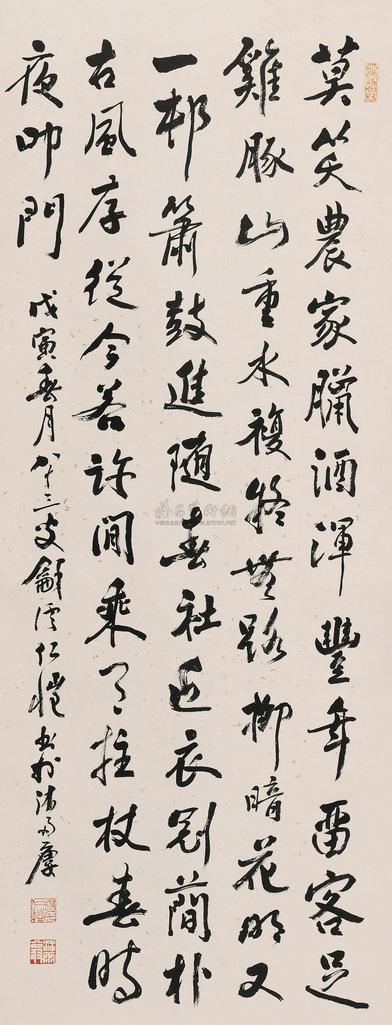 莫笑農家臘酒渾豐年畱客足
雞豚山重水複疑無路柳暗花明又
一邨簫鼓追隨春社近衣冠簡朴
古風存從今若許閒乘月拄杖無時
夜叩門
戊寅春月八十三叟龢溪仁愷書於沐雨廔